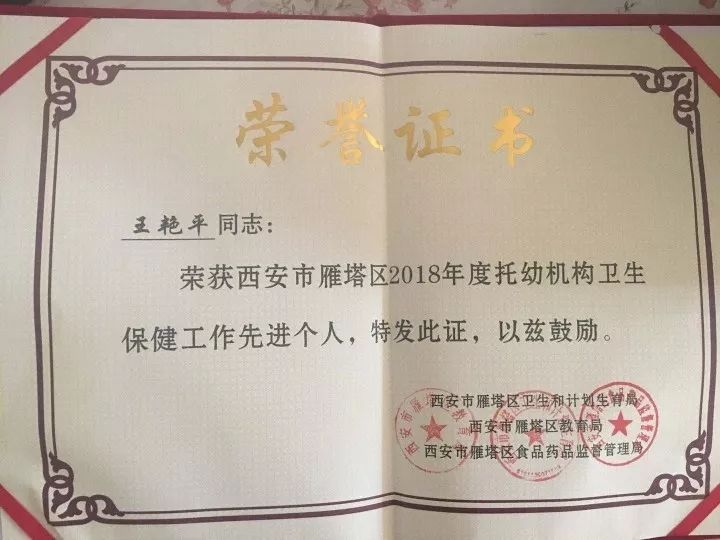 荣誉证书
王艳平同志：
荣获西安市雁塔区2018年度托幼机构卫生
保健工作先进个人，特发此证，以兹鼓励。
西安市雁塔区卫生和计划生育局
西安市雁塔区教育局
西安市雁塔区食品药品监督管理局